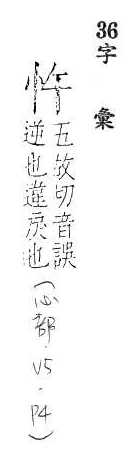 36字彙
忤
五故切音誤
逆也違戾也(心部.V5.P4)